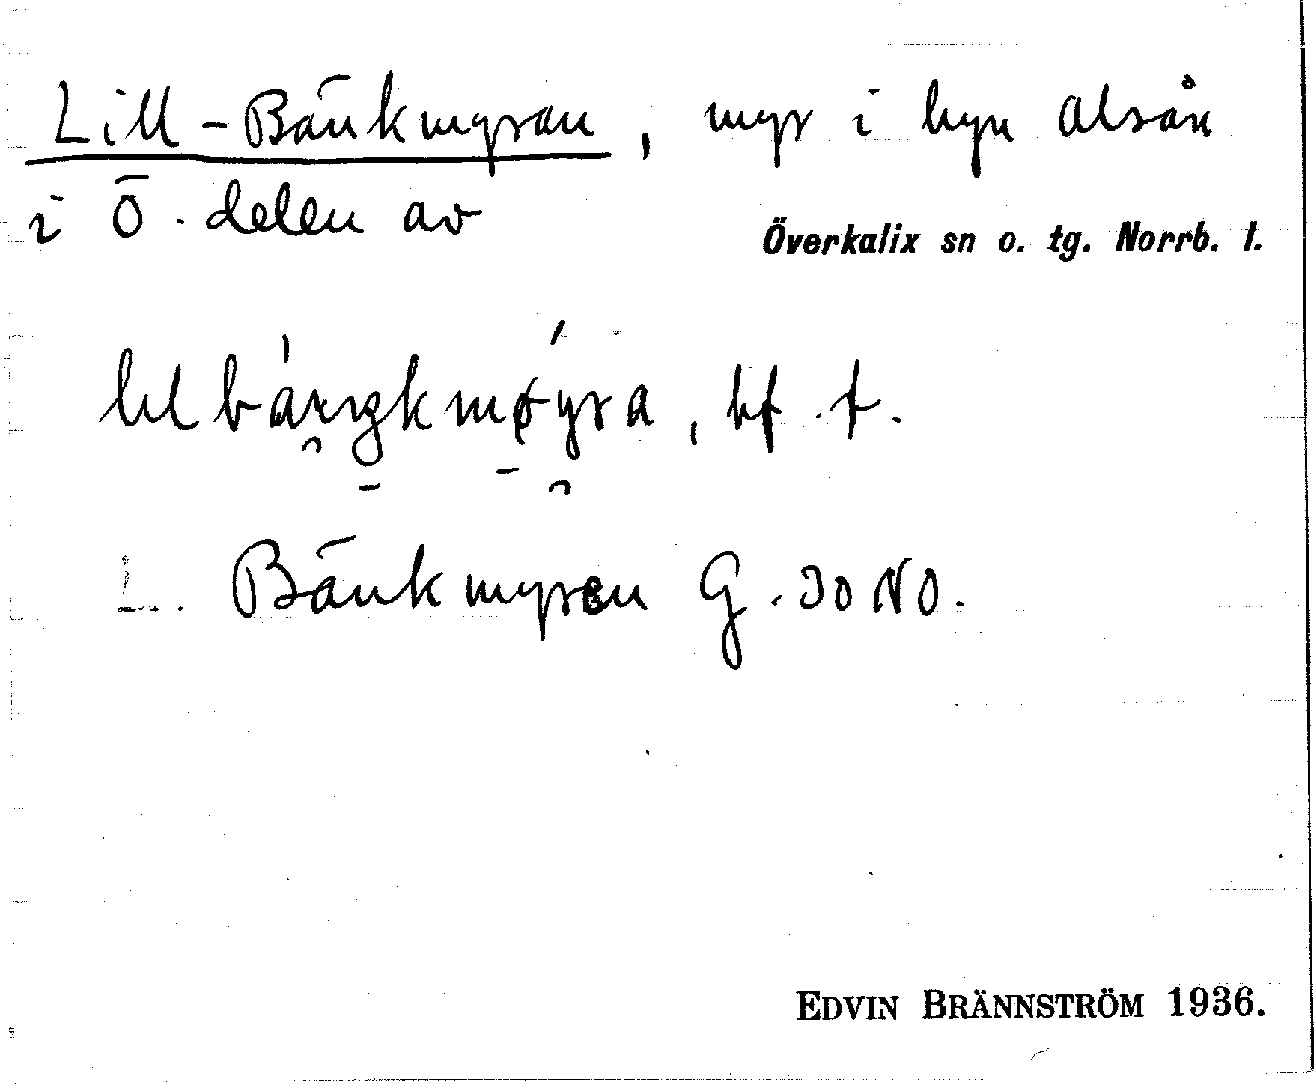 Lill-Bänkmyran, myr i byn Alsån
i Ö. delen av
Överkalix sn o. tg. Norrb. l.
bf. f.
L. Bänkmyran G. 30 NO.
EDVIN BRÄNNSTRÖM 1936.